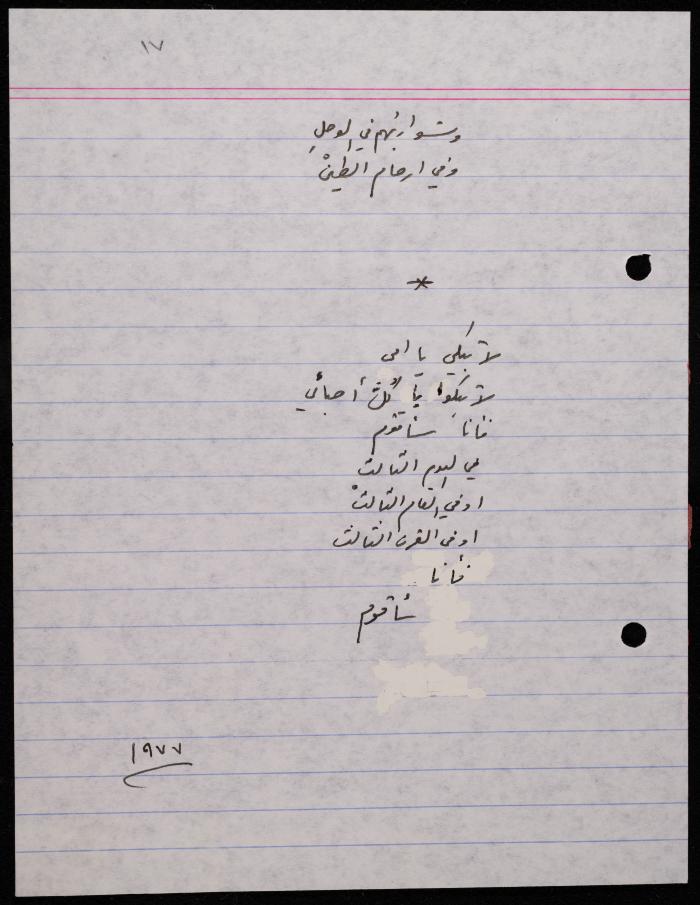 ١٧
وشواربُهم في الوحلِ
وفي ارحام الطينْ
*
لا تبكي يا امي
لا تبكوا يا كُلَّ أحبائي
فأنا سأقوم
في اليوم الثالث
او في العام الثالثْ
او في القرن الثالث
فأنا
سأقوم
١٩٧٧